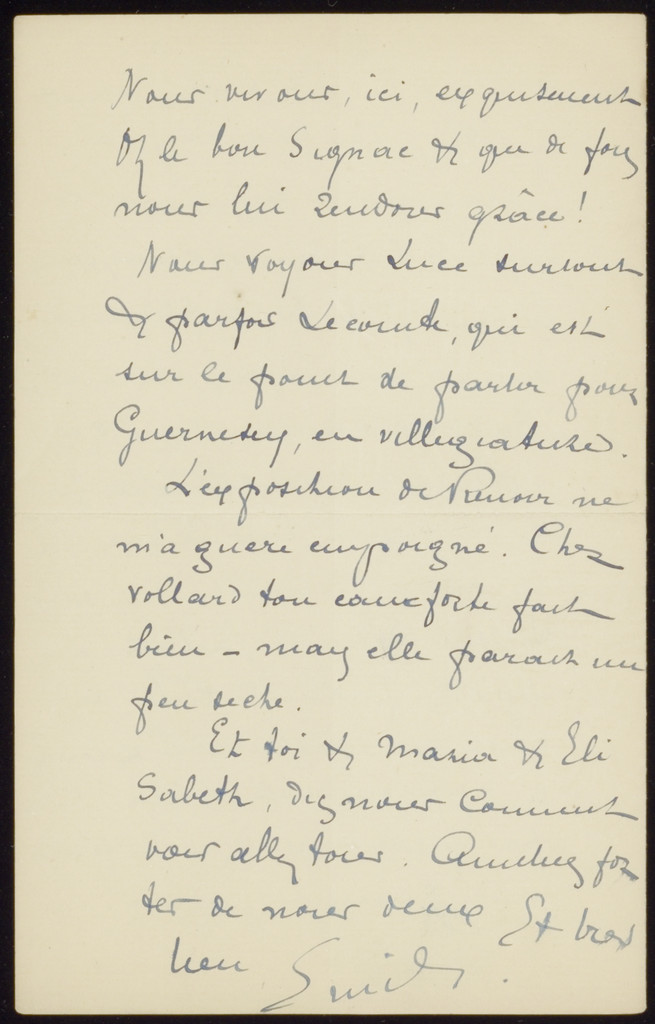 Nous vivons, ici, exquisement
chez le bon Signac & que de fois
nous lui rendons grâce!
Nous voyons Luce surtout
& parfois Lecomte, qui est
sur le point de partir pour
Guernesey, en villegiature.
L'exposition de Renoir ne
m'a guere empoigné. Chez
Vollard ton eau forte fait
bien – mais elle parait un
peu seche.
Et toi & Maria & Eli
sabeth, dis nous comment
vous allez tous. Amitiés for
tes de nous deux Et bras
bien